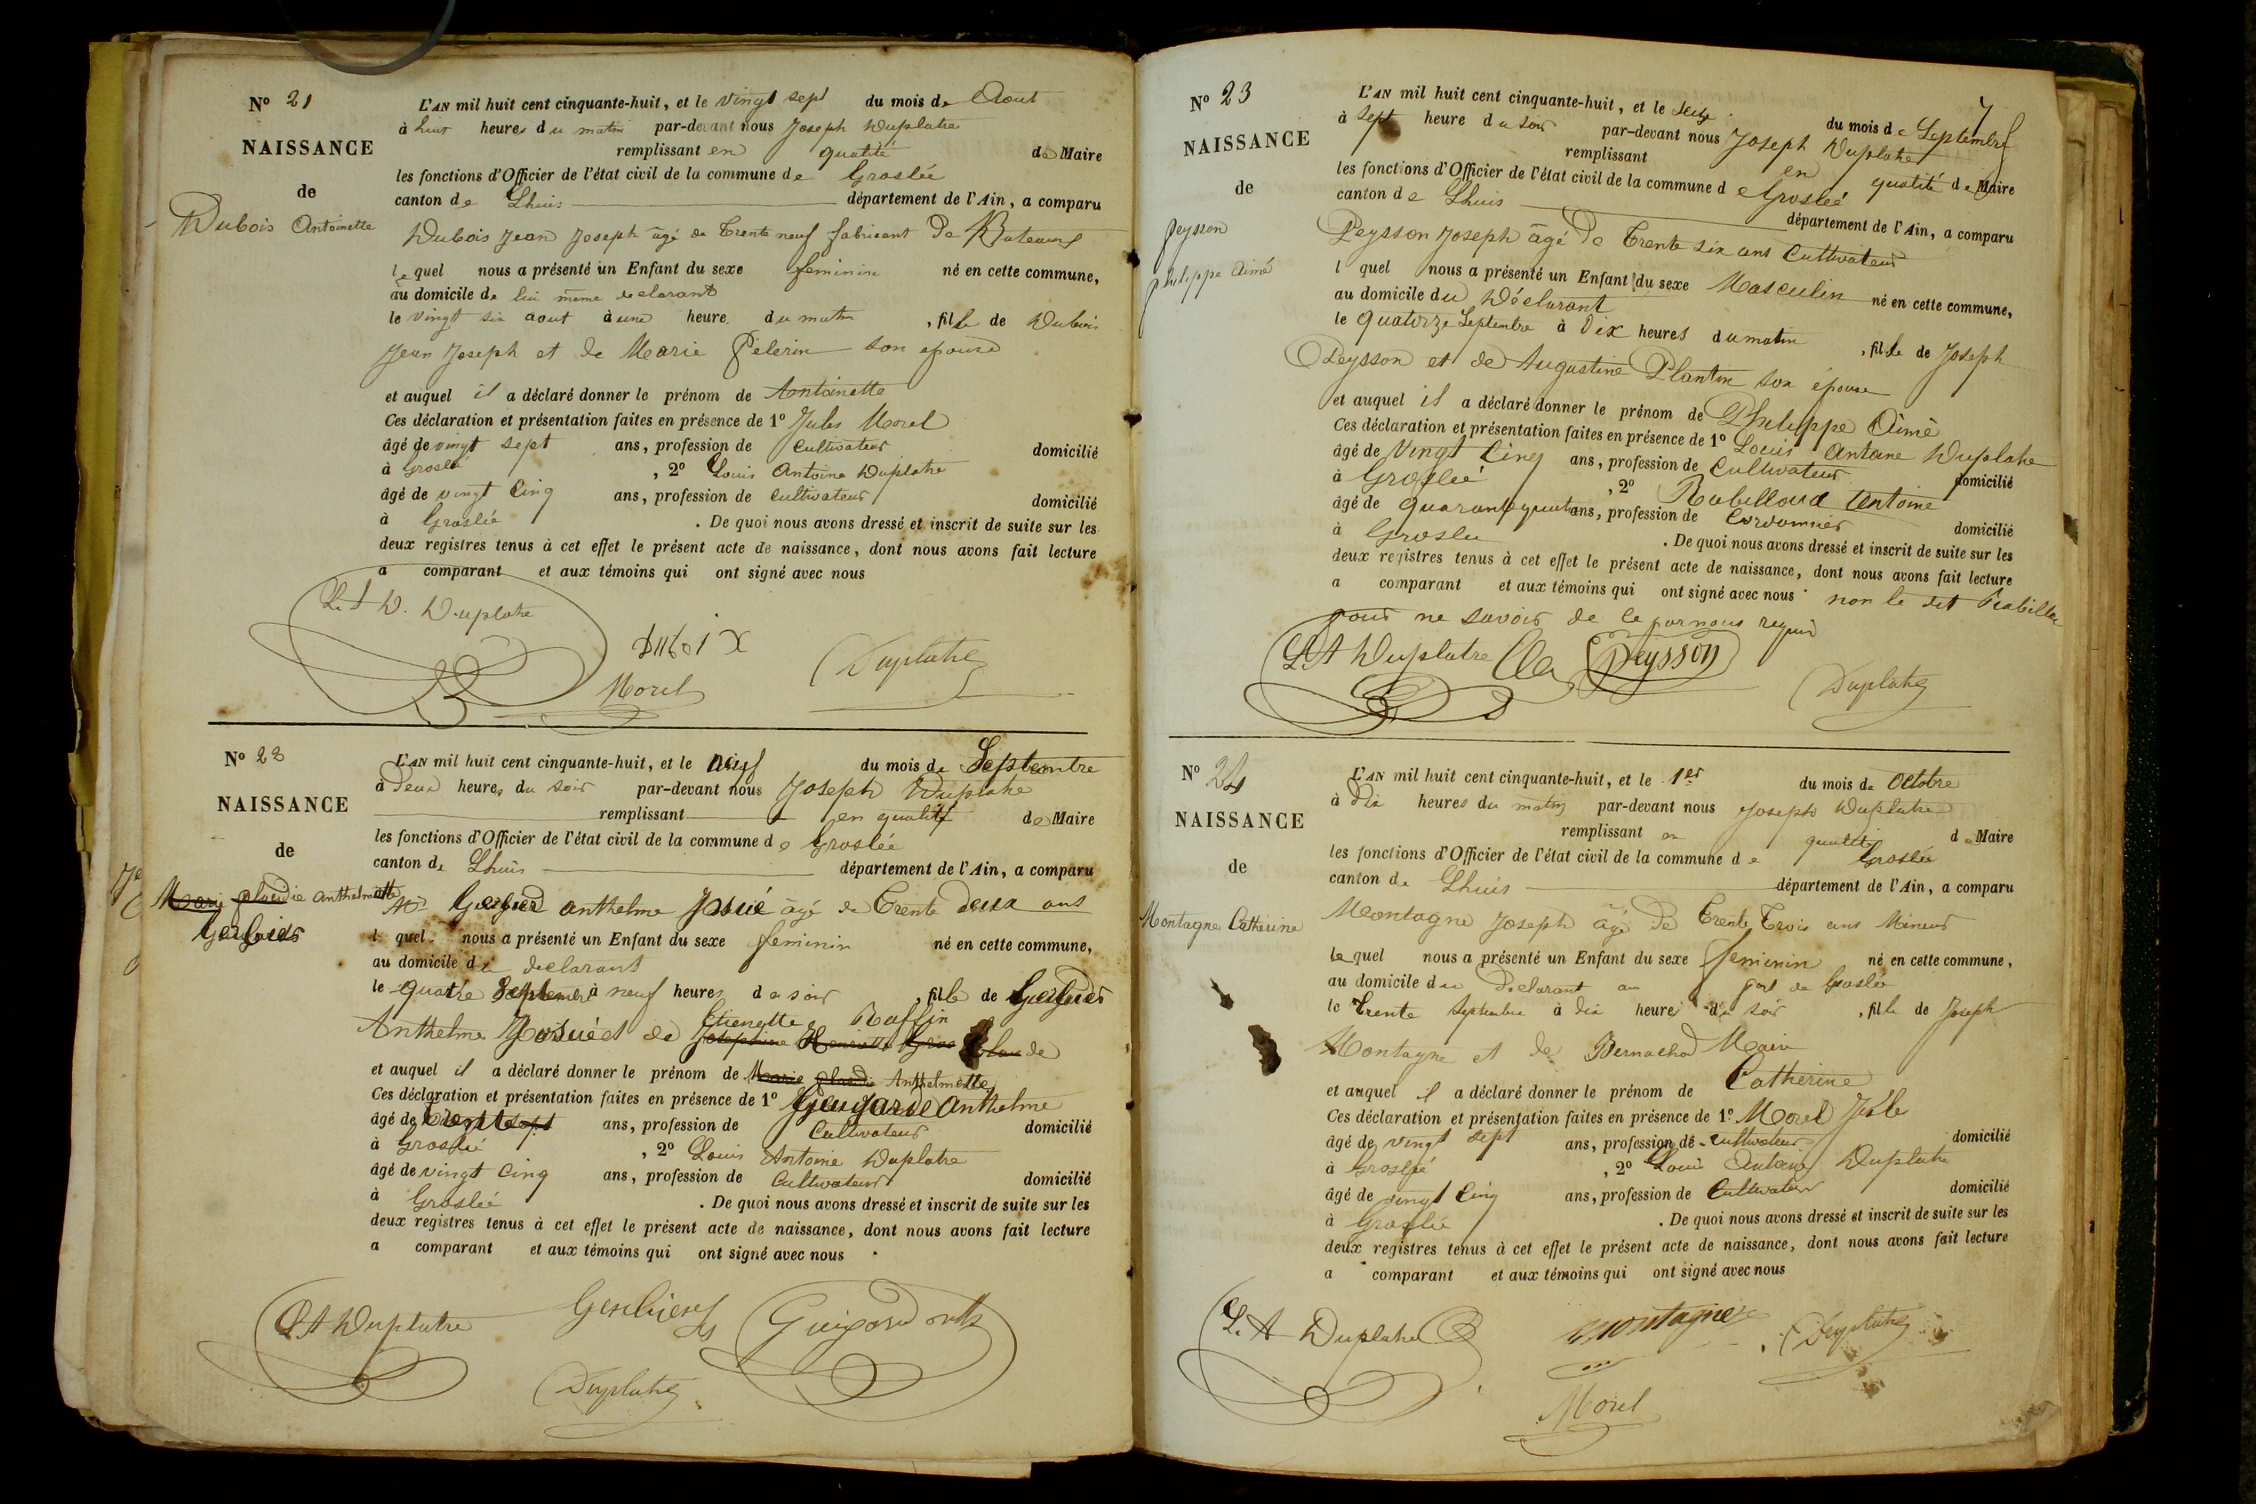 N° 21
NAISSANCE
de
Dubois Antoinette
L'AN mil huit cent cinquante-huit, et le vingt sept du mois de Aout
à huit heures du matin par-devant nous Joseph Duplatre
remplissant en qualité de Maire
les fonctions d'Officier de l'état civil de la commune de Groslée
canton de Lhuis département de l'Ain, a comparu
Dubois Jean Joseph âgé de Trente neuf fabricant de Bateaux
le quel nous a présenté un Enfant du sexe feminin né en cette commune,
au domicile de lui même declarant
le vingt six aout à une heure du matin, fille de Dubois
Jean Joseph et de Marie Pelerin son epouse
et auquel il a déclaré donner le prénom de Antoinette
Ces déclaration et présentation faites en présence de 1° Jules Morel
âgé de vingt sept ans, profession de cultivateur domicilié
à Groslée, 2° Louis Antoine Duplatre
âgé de vingt cinq ans, profession de cultivateur domicilié
à Groslée. De quoi nous avons dressé et inscrit de suite sur les
deux registres tenus à cet effet le présent acte de naissance, dont nous avons fait lecture
a comparant et aux témoins qui ont signé avec nous
Duplatre
Morel Duplatre
N° 22
NAISSANCE
de
Marie Anthelmette
L'AN mil huit cent cinquante-huit, et le neuf du mois de Septembre
à Deux heures du soir par-devant nous Joseph Duplatre
remplissant en qualité de Maire
les fonctions d'Officier de l'état civil de la commune de Groslée
canton de Lhuis département de l'Ain, a comparu
anthelme Josué âgé de Trente deux ans
l quel nous a présenté un Enfant du sexe feminin né en cette commune,
au domicile du declarant
le quatre Septembre à neuf heures du soir, fille de
Etienette Raffin
Anthelme Josué et de Josephine Henriette
et auquel il a déclaré donner le prénom de Marie Anthelmette
Ces déclaration et présentation faites en présence de 1° Anthelme
âgé de ans, profession de Cultivateur domicilié
à Groslée, 2° Louis Antoine Duplatre
âgé de vingt cinq ans, profession de Cultivateur domicilié
à Groslée. De quoi nous avons dressé et inscrit de suite sur les
deux registres tenus à cet effet le présent acte de naissance, dont nous avons fait lecture
a comparant et aux témoins qui ont signé avec nous
L A Duplatre
Duplatre
7
N° 23
NAISSANCE
de
Peysson
philippe Aimé
L'AN mil huit cent cinquante-huit, et le seize du mois de Septembre
à sept heure du soir par-devant nous Joseph Duplatre
remplissant en qualité de Maire
les fonctions d'Officier de l'état civil de la commune de Groslée
canton de Lhuis département de l'Ain, a comparu
Peysson Joseph âgé de Trente six ans Cultivateur
l quel nous a présenté un Enfant du sexe Masculin né en cette commune,
au domicile du Déclarant
le quatorze Septembre à Dix heures du matin, fils de Joseph
Peysson et de Augustine Plantin son épouse
et auquel il a déclaré donner le prénom de Philippe Aimé
Ces déclaration et présentation faites en présence de 1° Louis Antoine Duplatre
âgé de Vingt Cinq ans, profession de Cultivateur domicilié
à Groslée, 2° Rabilloud Antoine
âgé de quarante quatre ans, profession de Cordonnier domicilié
à Groslée. De quoi nous avons dressé et inscrit de suite sur les
deux registres tenus à cet effet le présent acte de naissance, dont nous avons fait lecture
a comparant et aux témoins qui ont signé avec nous non le dit Rabilloud
pour ne savoir de ce par nous requis
L A Duplatre Peysson
Duplatre
N° 24
NAISSANCE
de
Montagne Catherine
L'AN mil huit cent cinquante-huit, et le 1er du mois de Octobre
à Dix heures du matin par-devant nous Joseph Duplatre
remplissant en qualité de Maire
les fonctions d'Officier de l'état civil de la commune de Groslée
canton de Lhuis département de l'Ain, a comparu
Montagne Joseph âgé De Trente Trois ans Mineur
le quel nous a présenté un Enfant du sexe feminin né en cette commune,
au domicile du Declarant au port de Groslée
le Trente Septembre à dix heures du soir, fille de Joseph
Montagne et de Bernachod Marie
et auquel il a déclaré donner le prénom de Catherine
Ces déclaration et présentation faites en présence de 1° Morel Jule
âgé de vingt sept ans, profession de cultivateur domicilié
à Groslée, 2° Louis Antoine Duplatre
âgé de vingt Cinq ans, profession de Cultivateur domicilié
à Groslée. De quoi nous avons dressé et inscrit de suite sur les
deux registres tenus à cet effet le présent acte de naissance, dont nous avons fait lecture
a comparant et aux témoins qui ont signé avec nous
L. A Duplatre montagne Duplatre
Morel